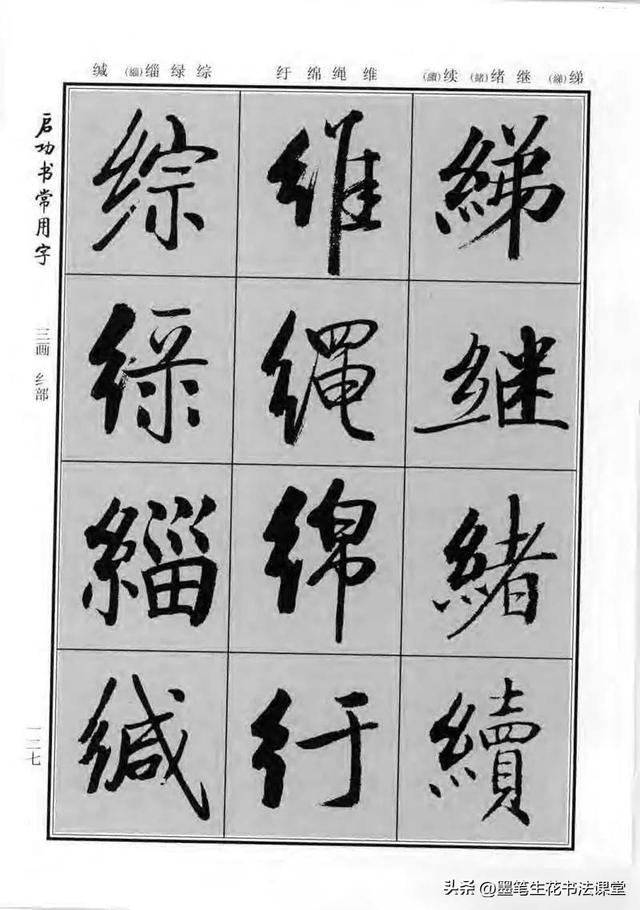 缄 (緇)缁绿综
纡绵绳维
(續)续(緒)绪继(綈)绨
启功书常用字
三画 纟部
一二七
綈
继
緒
續
维
绳
绵
纡
综
绿
緇
缄
头条 @墨笔生花书法课堂